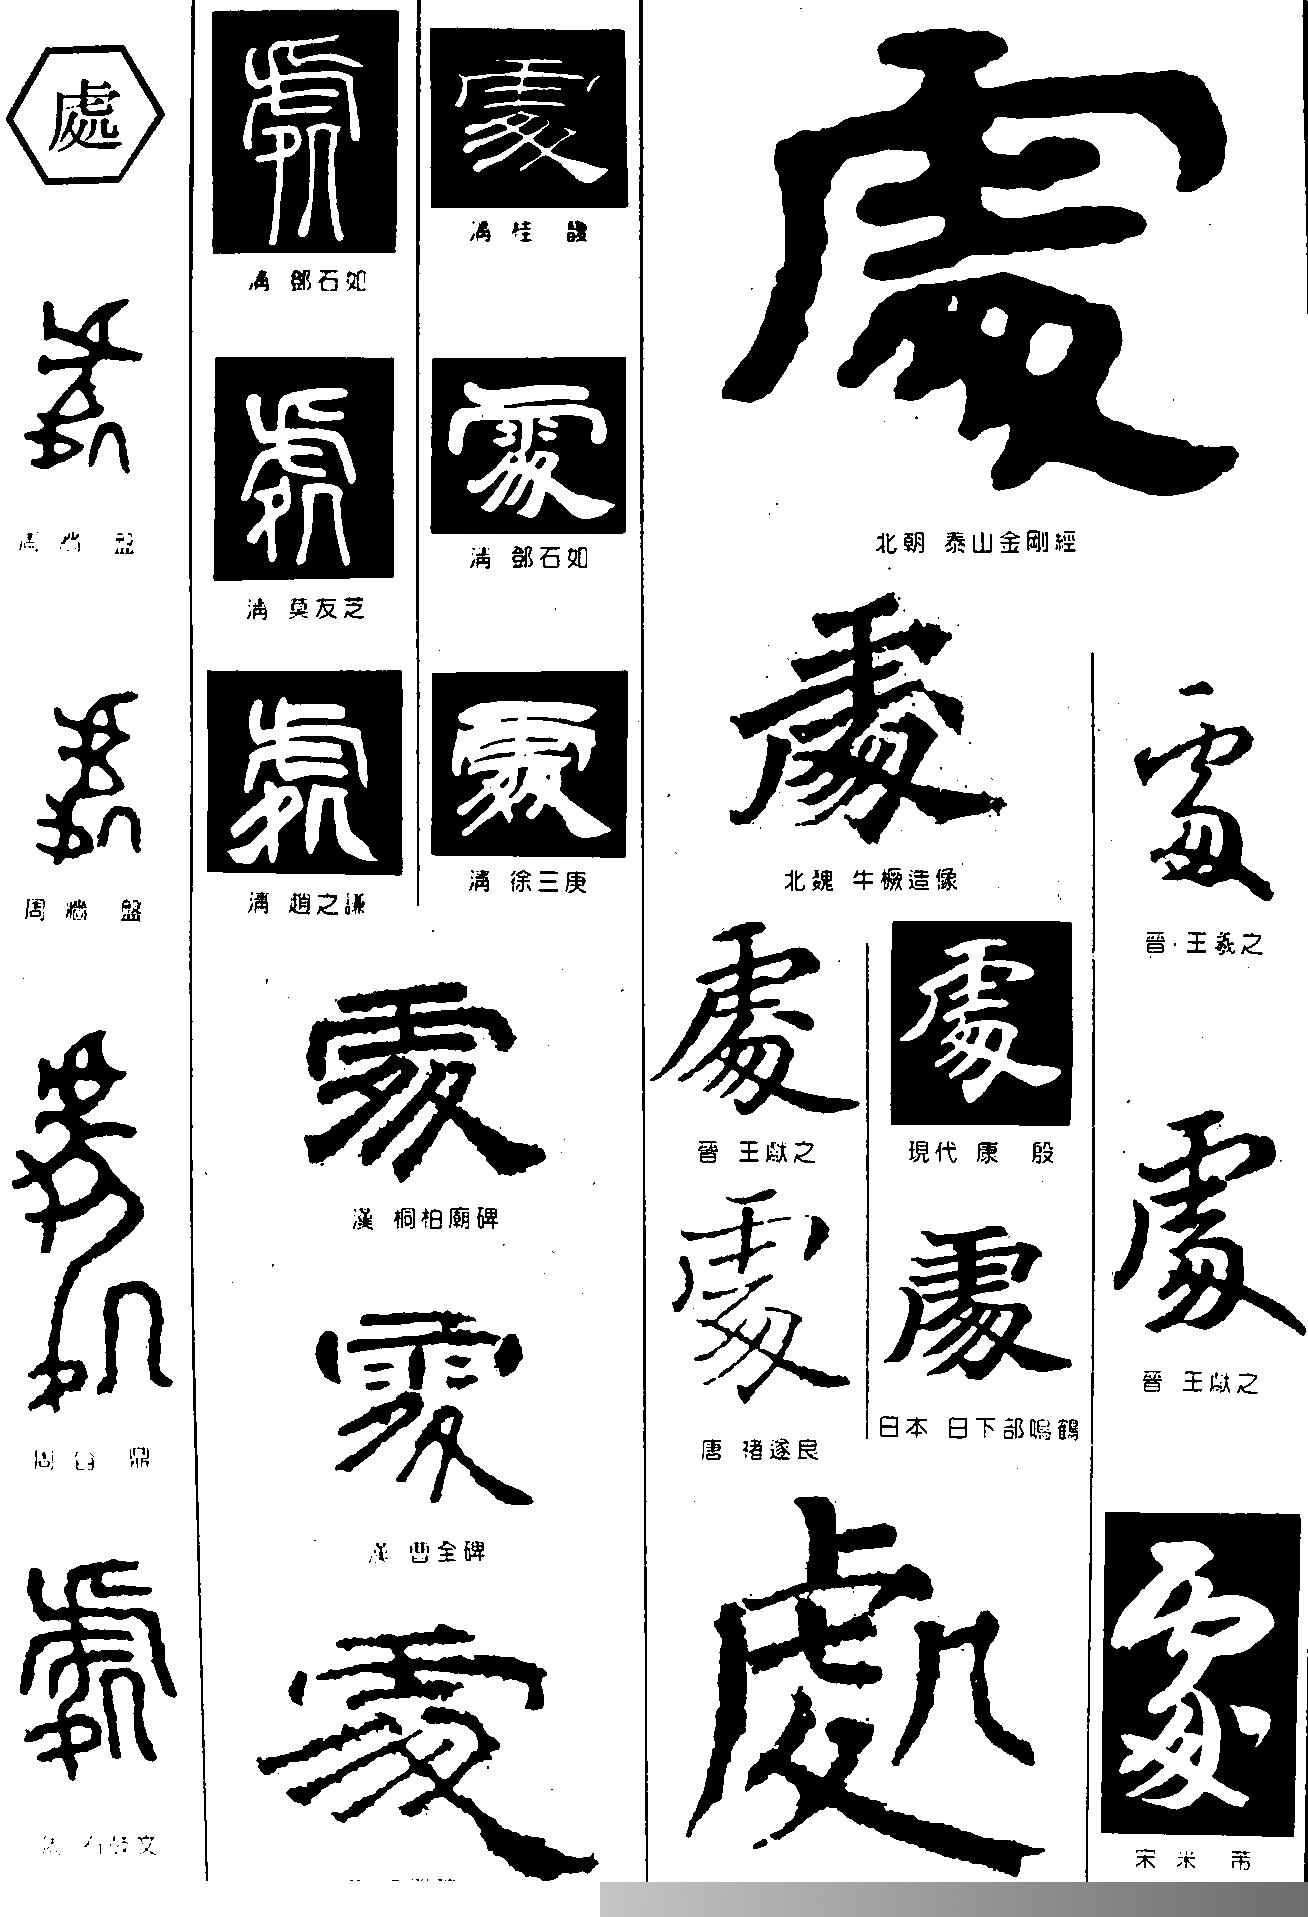 處
周 牆 盤
周 牆 盤
周 舀 鼎
周 石鼓文
清 鄧石如
清 莫友芝
清 趙之謙
清 桂 馥
清 鄧石如
清 徐三庚
漢 桐柏廟碑
漢 曹全碑
北朝 泰山金剛經
北魏 牛橛造像
晉 王獻之
唐 褚遂良
現代 康 殷
日本 日下部鳴鶴
晉 王羲之
晉 王獻之
宋 米 芾